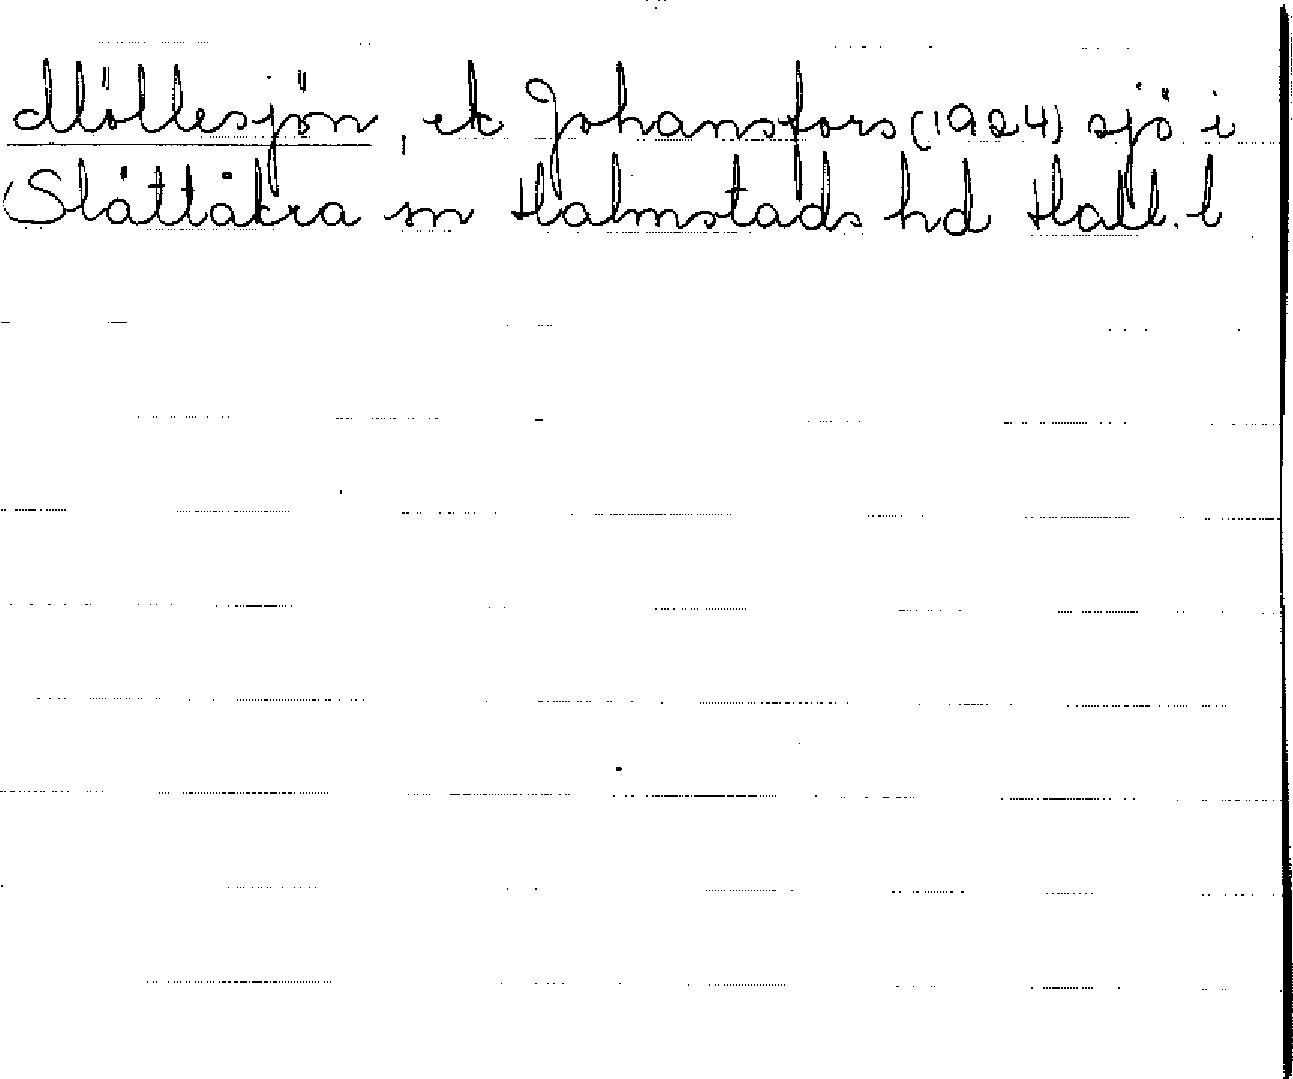 Möllesjön, ek Johansfors (1924) sjö i
Slättåkra sn Halmstads hd Hall. l